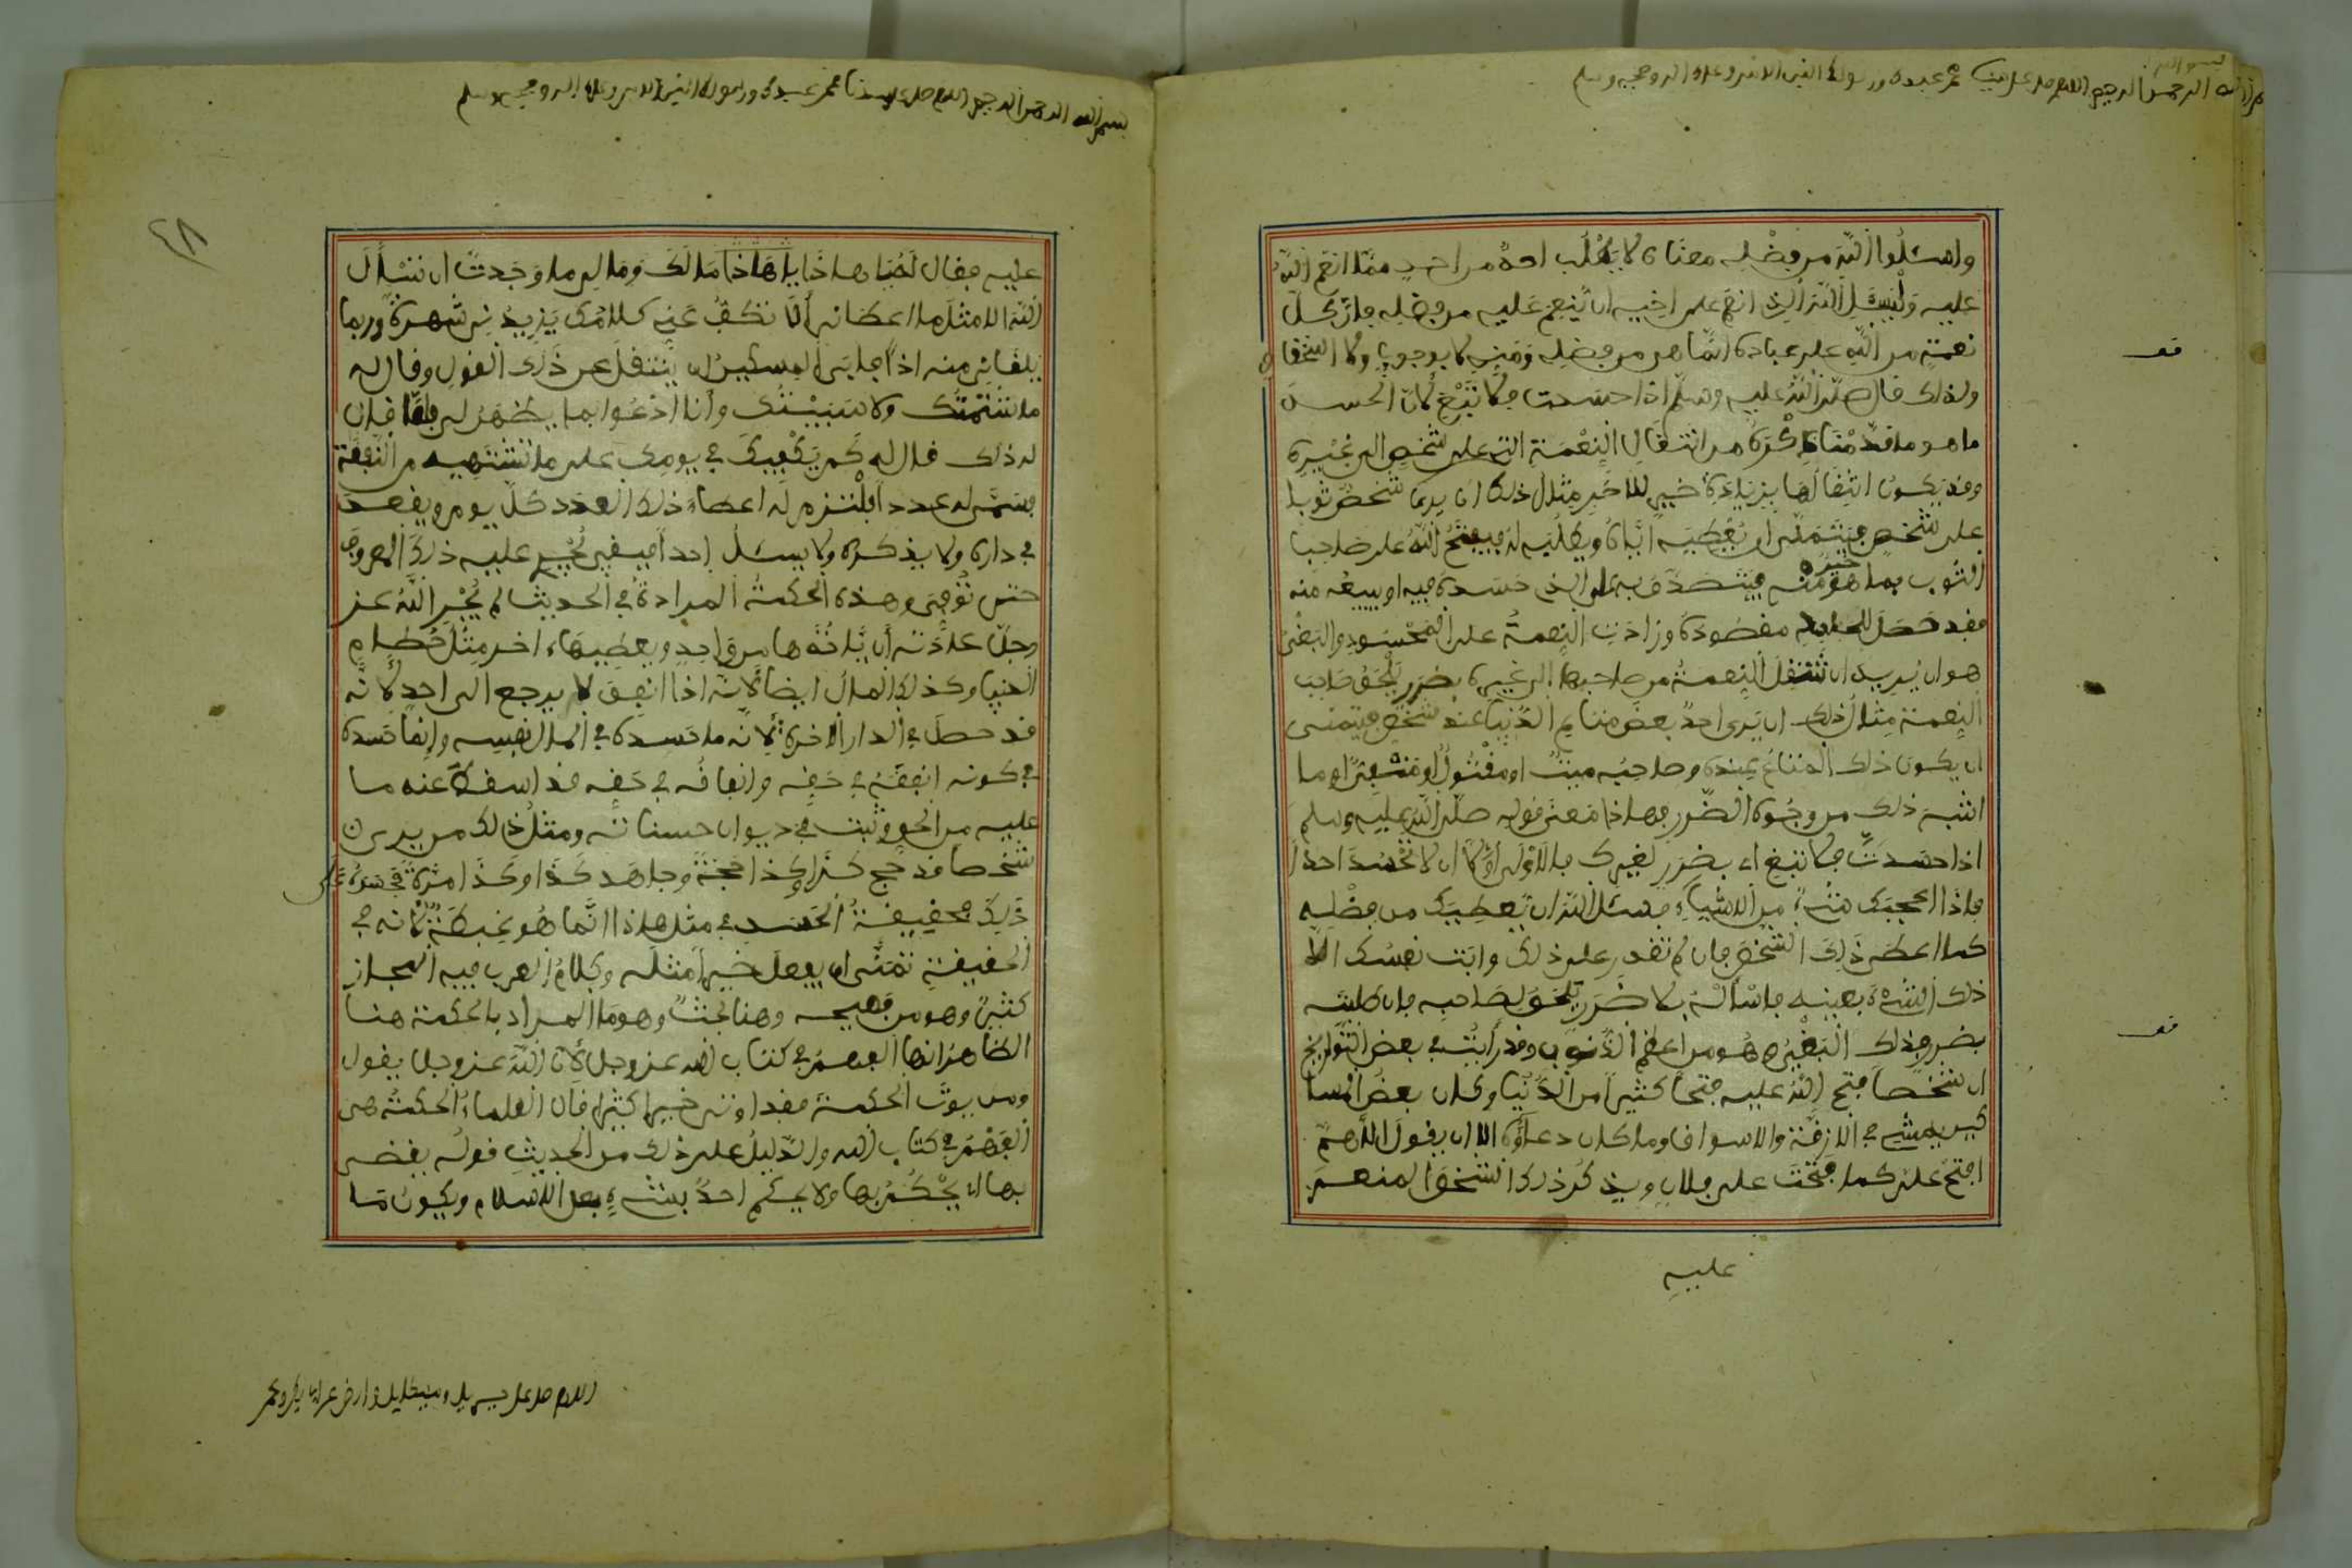 بسم الله الرحمن الرحيم اللهم صل على سيدنا محمد عبدك ورسولك النبي الامي وعلى اله وصحبه وسلم
واسئلوا الله من فضله معناه لا يطلب احد من احد مما انعم الله
عليه وليسئل الله الذي انعم على اخيه ان ينعم عليه من فضله فان كل
نعمة من الله على عباده انما هي من فضله ومنه لا بوجوب ولا استحقاق
ولذلك قال صلى الله عليه وسلم اذا حسدت فلا تبغ لان الحسد
ما هو ما قدمنا ذكره من انتقال النعمة التي على شخص الى غيره
وقد يكون انتقالها بزيادة خير للاخر مثال ذلك ان يرى شخص ثوبا
على شخص فيتمنى ان يعطيه اياه ويطلبه له فيفتح الله على صاحب
الثوب بما هو خير منه فيتصدق به على الذي حسده فيه او يبيعه منه
فقد حصل للحاسد مقصوده وزادت النعمة على المحسود والبغي
هو ان يريد ان تنتقل النعمة من صاحبها الى غيره بضرر يلحق صاحب
النعمة مثال ذلك ان يرى احد بعض متاع الدنيا عند شخص فيتمنى
ان يكون ذلك المتاع بيده وصاحبه ميت او مقتول او وما
اشبه ذلك من وجوه الضرر فهاذا معنى قوله صلى الله عليه وسلم
اذا حسدت فلا تبغ اي بضرر لغيرك فالاولى اولا ان لا تحسد احدا
فاذا اعجبك شيء من الاشياء فسئل الله ان يعطيك من فضله
كما اعطى ذلك الشخص فان لم تقدر على ذلك وابت نفسك الا
ذلك الشيء بعينه فاسأله بلا ضرر يلحق لصاحبه فان طلبته
بضرر فذلك البغي وهو من اعظم الذنوب وقد رأيت في بعض التواريخ
ان شخصا فتح الله عليه فتحا كثيرا من الدنيا وكان بعض المسا
كين يمشي في الازقة والاسواق وما كان دعاؤه الا ان يقول اللهم
افتح علي كما فتحت على فلان ويذكر ذلك الشخص المنعم
عليه
بسم الله الرحمن الرحيم اللهم صل على سيدنا محمد عبدك ورسولك النبي الامي وعلى اله وصحبه وسلم
٤٨
عليه فقال له يا هاذا مالك وما لي ما وجدت ان تسأل
الله الا مثل ما اعطاني ألا تكف عني كلامك يزيدني شهرة وربما
يلقاني منه اذا فابى المسكين ان ينتقل عن ذلك القول وقال له
ما شتمتك ولا سببتك وأنا ادعوا بما يظهر لي فلما فان
له ذلك قال له كم يكفيك في يومك على ما تشتهيه من النفقة
فسمى له عددا فالتزم له اعطاء ذلك العدد كل يوم ويقعد
في داره ولا يذكره ولا يسئل احدا فبقي يجري عليه ذلك المعروف
حتى توفي وهذه الحكمة المرادة في الحديث لم يجر الله عز
وجل عادته ان يأخذها من واحد ويعطيها اخر مثل حطام
الدنيا وكذلك المال ايضا لانه اذا انفق لا يرجع الى احد لانه
قد حصل في الدار الاخرة لانه ما حسده في المال لنفسه وانما حسده
في كونه انفقه في حقه وانفاقه في حقه قد اسقط عنه ما
عليه من الحق وثبت في ديوان حسناته ومثل ذلك من يرى ان
شخصا قد حج كذا وكذا حجة وجاهد كذا وكذا مرة فحسده على
ذلك فحقيقة الحسد في مثل هاذا انما هو غبطة لانه في
الحقيقة تمنى ان يفعل خيرا مثله وكلام العرب فيه المجاز
كثير وهو من فصيحه وهنا بحث وهو ما المراد بالحكمة هنا
الظاهر انها الفهم في كتاب الله عز وجل لان الله عز وجل يقول
ومن يوت الحكمة فقد اوتي خيرا كثيرا قال العلماء الحكمة هي
الفهم في كتاب الله والدليل على ذلك من الحديث قوله يقضي
بها اي يحكم بها ولا يحكم احد بشيء بعد الاسلام ويكون مما
اللهم صل على جبريل وميكايل وارض عن ابي بكر وعمر